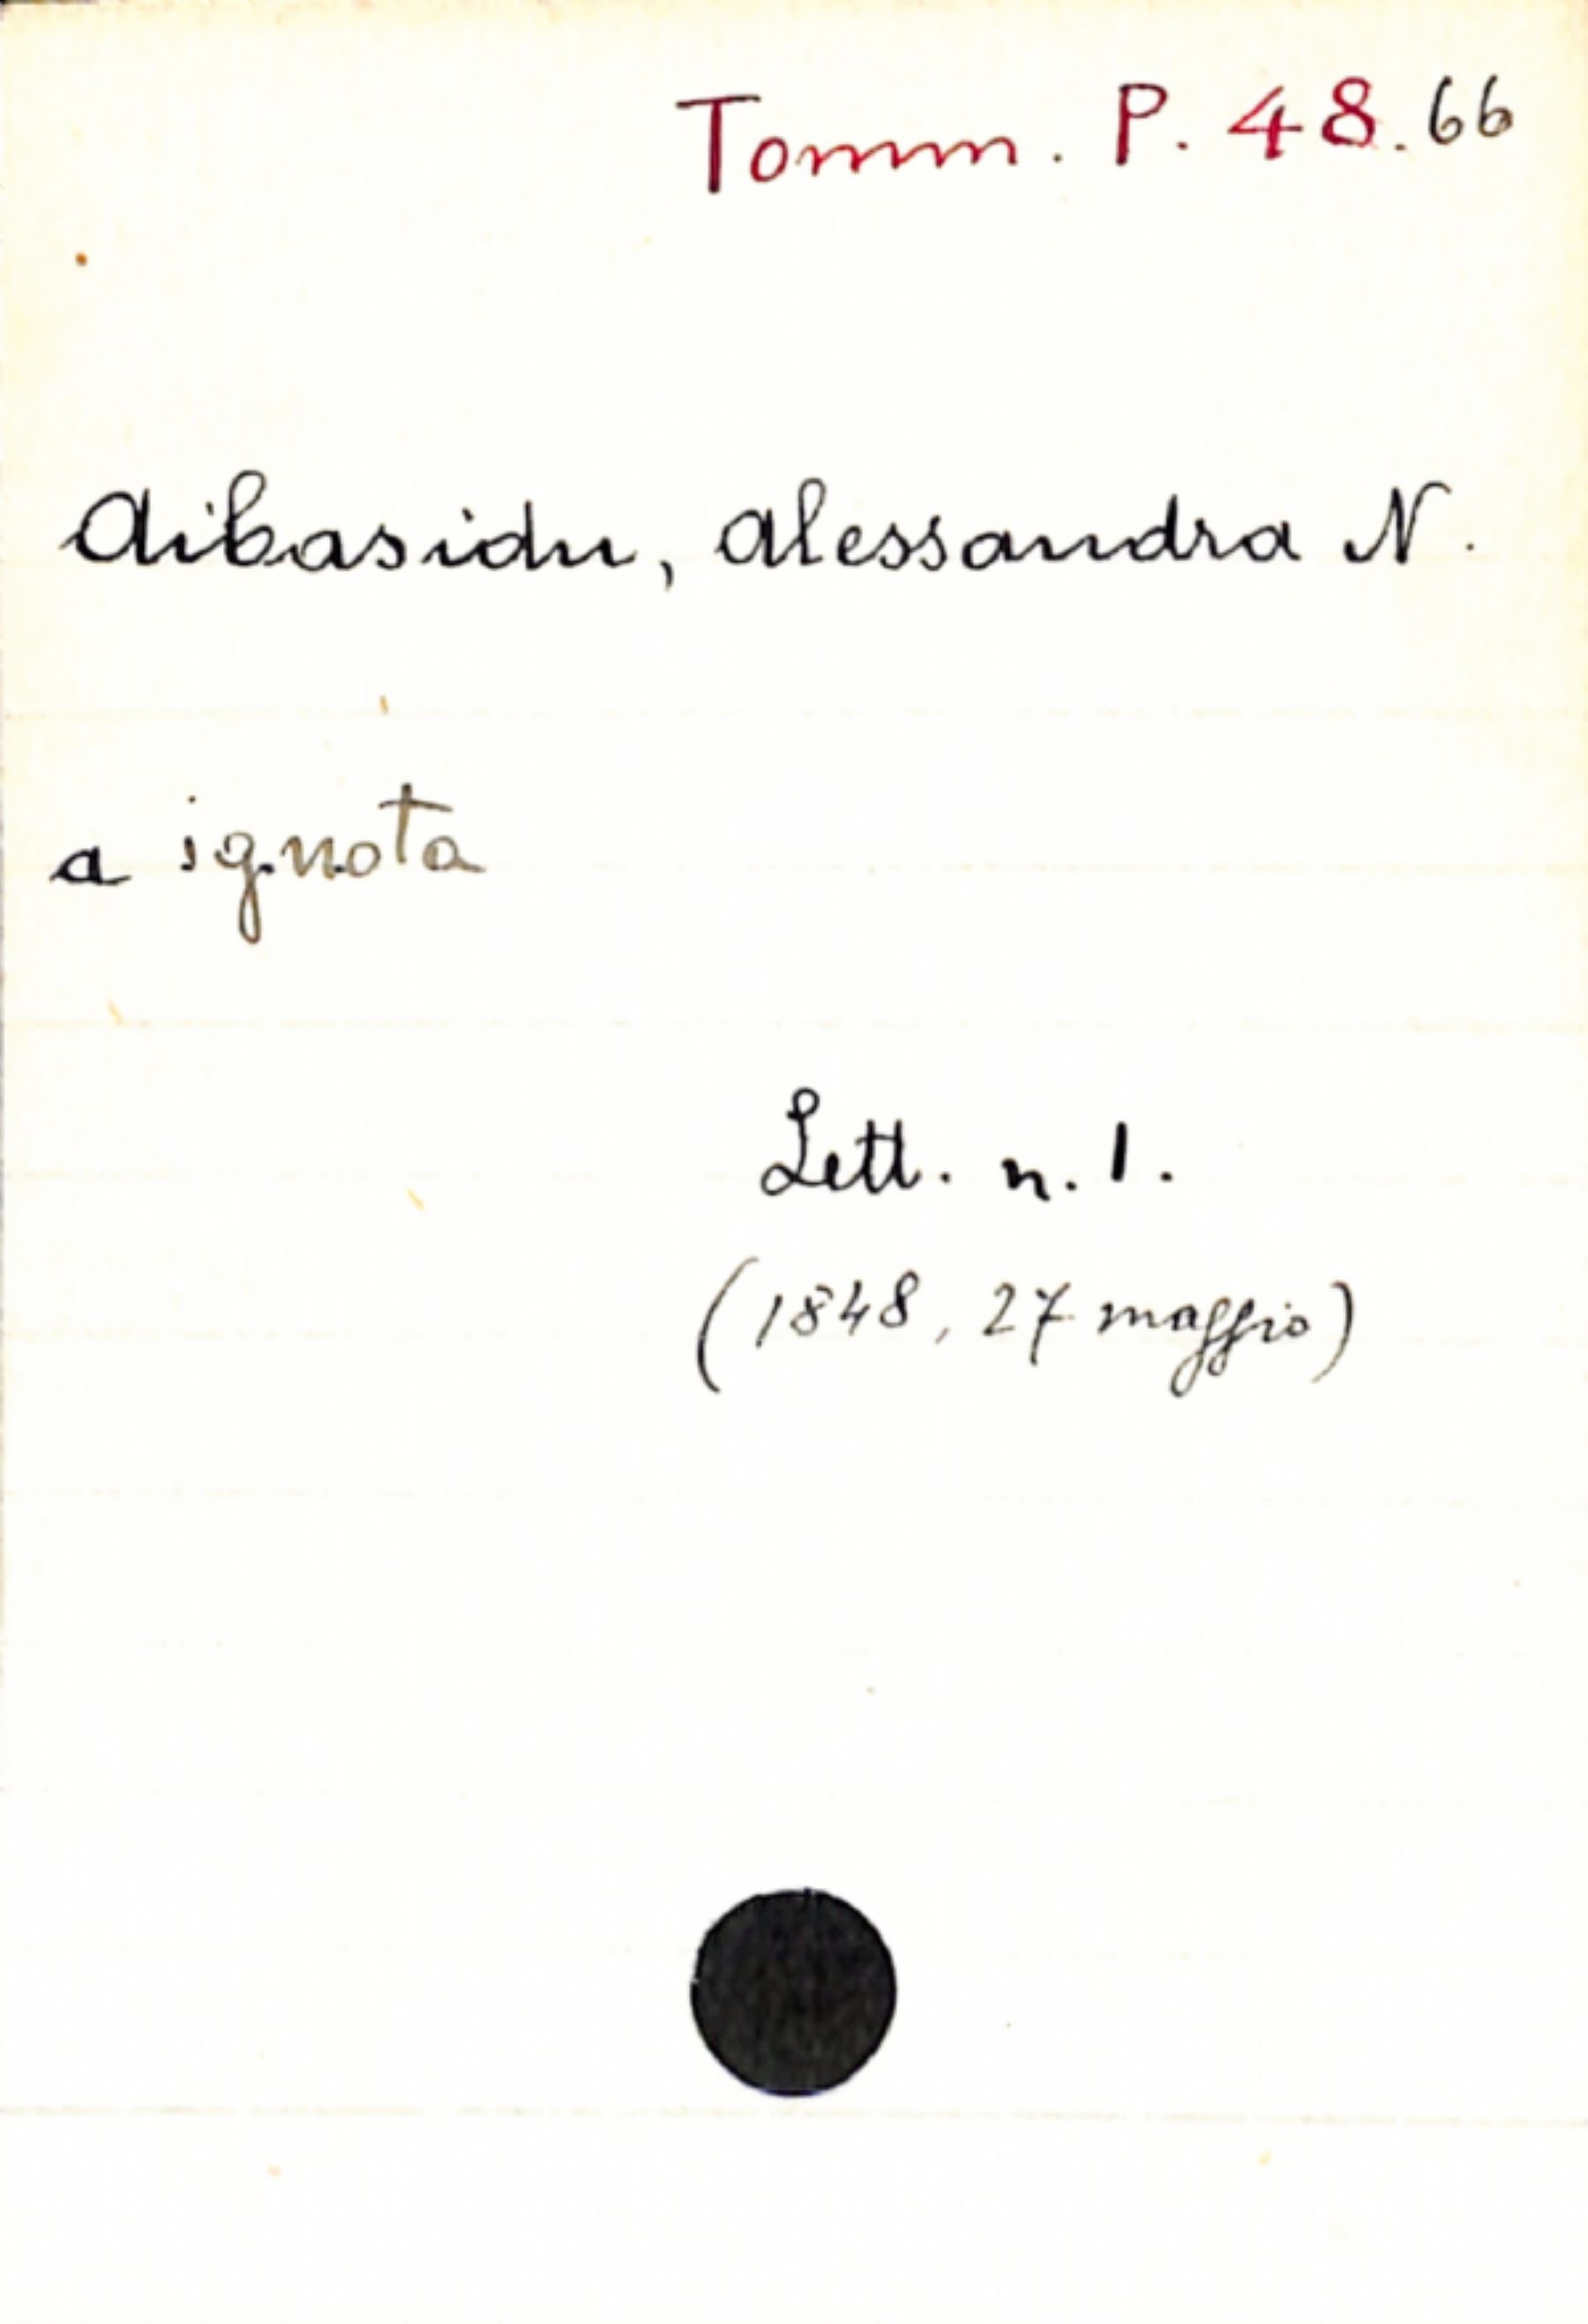 Tomm. P. 48.66
Aibasidu, Alessandra N.
a ignota
Lett. n. 1.
(1848, 27 maggio)